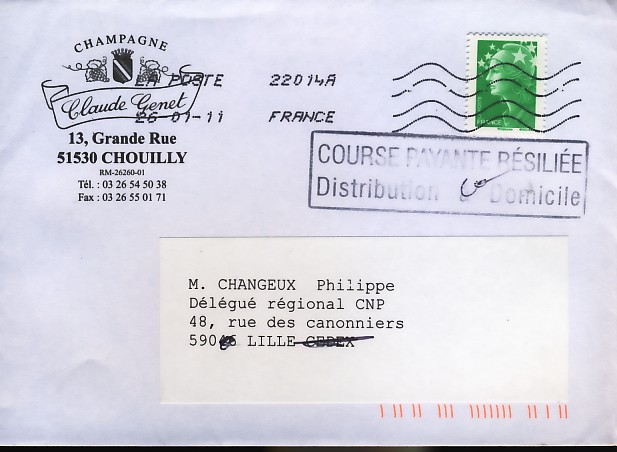 CHAMPAGNE
Claude Genet
13, Grande Rue
51530 CHOUILLY
RM-26260-01
Tél. : 03 26 54 50 38
Fax : 03 26 55 01 71
LA POSTE 22014A
26-01-11 FRANCE
FRANCE
COURSE PAYANTE RÉSILIÉE
Distribution à Domicile
M. CHANGEUX Philippe
Délégué régional CNP
48, rue des canonniers
LILLE CEDEX